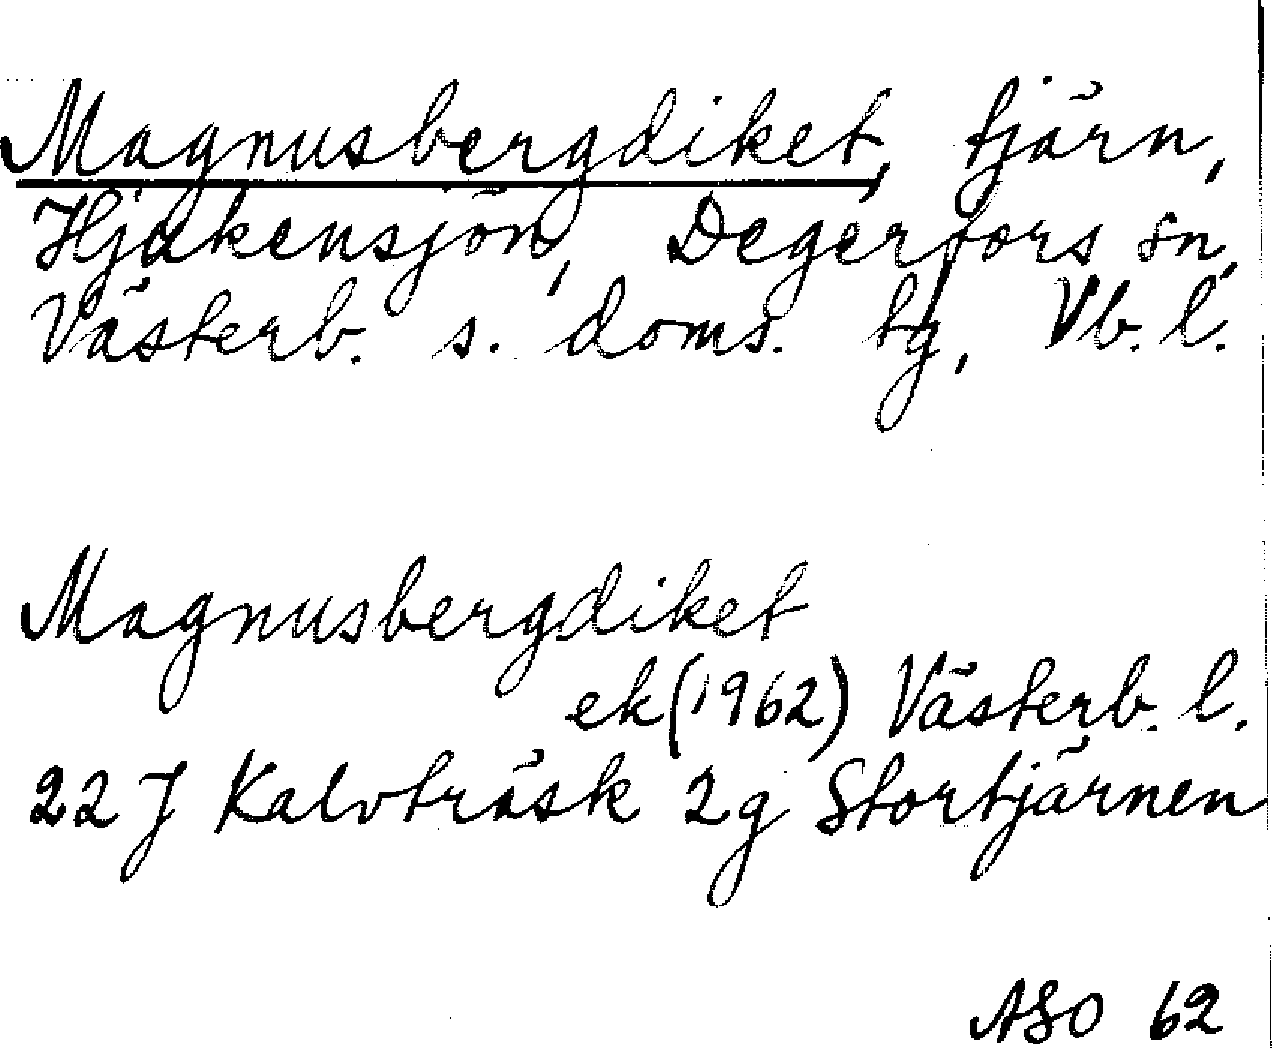 Magnusbergdiket, tjärn,
Hjukensjön, Degerfors sn,
Västerb. s. doms. tg, Vb. l.
Magnusbergdiket
ek (1962) Västerb. l.
22 J Kalvträsk 2g Stortjärnen
ASO 62